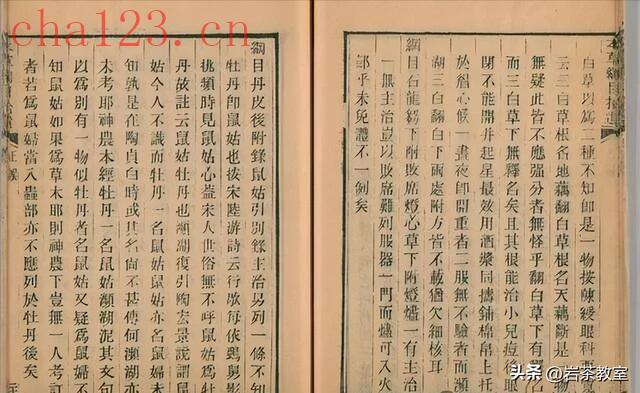 本草綱目拾遺
白草以爲二種不知卽是一物按陳緩眼科
云三白草根名地藕翻白草根名天藕斷是
者此皆不應强分者無怪乎翻白草下有
而三白草下無釋名矣且其根能治小兒痘後眼
閉不能開幷起星最效用酒漿同擣鋪棉帛上托
於眉心候一晝夜卽開重者二服無不驗者而瀕
湖三白翻白下兩處附方皆不載猶欠細核耳
綱目石龍芻下附敗席燈心草下附燈燼一有主治
一無主治以敗席難列服器一門而燼可入火
部乎未免體不一例矣
綱目丹皮後附錄鼠姑引別錄主治另列一條不知
牡丹卽鼠姑也按宋陸游詩云行歌每依鴉舅影
挑頻時見鼠姑心蓋宋人世俗無不呼鼠姑爲牡
丹故註云鼠姑牡丹也瀕湖復引陶宏景說謂鼠
姑今人不識而牡丹一名鼠姑鼠婦亦名鼠姑未
知孰是在陶貞白時或其名尚不甚傳何瀕湖亦
未考耶濵農本經牡丹一名鼠姑瀕湖泥其文句
以爲別有一物似牡丹者名鼠姑又疑爲鼠婦不
知鼠姑如果爲草木耶則神農下豈無一人考訂
者若爲鼠婦當入蟲部亦不應列於牡丹後矣
正誤
cha123.cn
头条 @岩茶教室